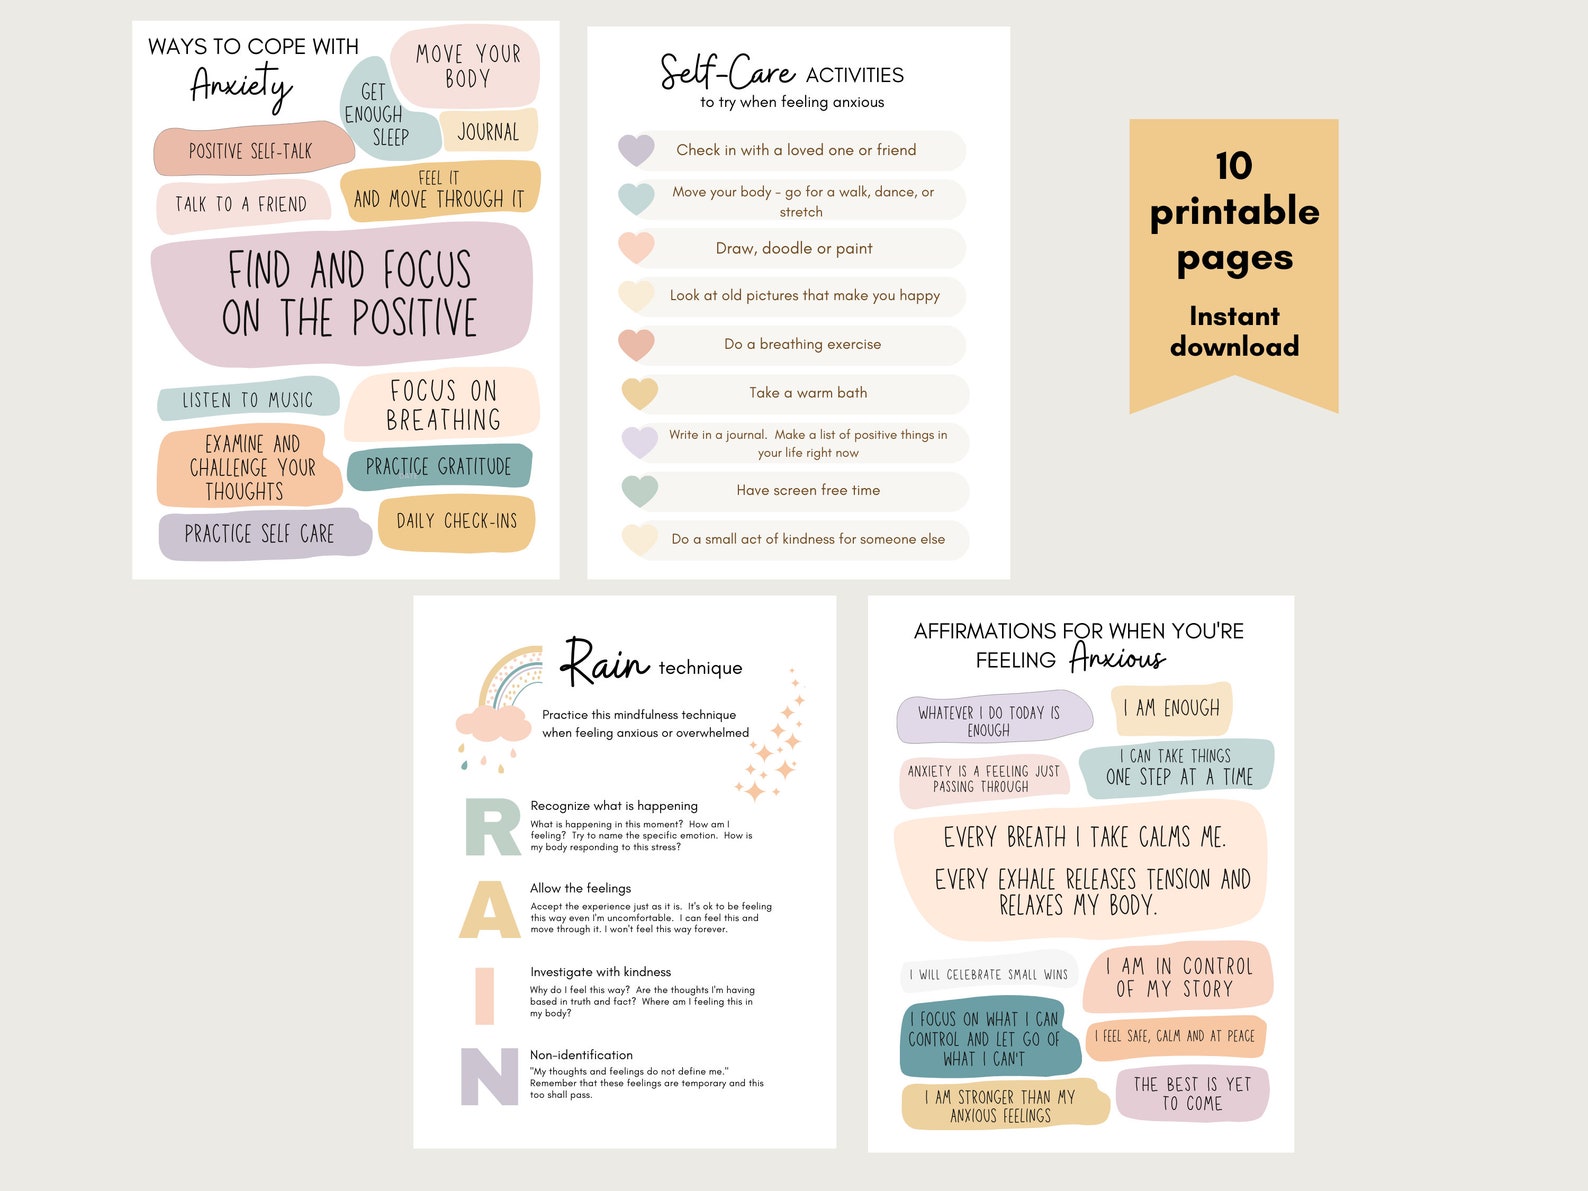 WAYS TO COPE WITH
Anxiety
MOVE YOUR
BODY
GET
ENOUGH
SLEEP
JOURNAL
POSITIVE SELF-TALK
FEEL IT
AND MOVE THROUGH IT
TALK TO A FRIEND
FIND AND FOCUS
ON THE POSITIVE
LISTEN TO MUSIC
FOCUS ON
BREATHING
EXAMINE AND
CHALLENGE YOUR
THOUGHTS
PRACTICE GRATITUDE
PRACTICE SELF CARE
DAILY CHECK-INS
Self-Care ACTIVITIES
to try when feeling anxious
Check in with a loved one or friend
Move your body - go for a walk, dance, or
stretch
Draw, doodle or paint
Look at old pictures that make you happy
Do a breathing exercise
Take a warm bath
Write in a journal. Make a list of positive things in
your life right now
Have screen free time
Do a small act of kindness for someone else
10
printable
pages
Instant
download
Rain technique
Practice this mindfulness technique
when feeling anxious or overwhelmed
R
Recognize what is happening
What is happening in this moment? How am I
feeling? Try to name the specific emotion. How is
my body responding to this stress?
A
Allow the feelings
Accept the experience just as it is. It's ok to be feeling
this way even I'm uncomfortable. I can feel this and
move through it. I won't feel this way forever.
I
Investigate with kindness
Why do I feel this way? Are the thoughts I'm having
based in truth and fact? Where am I feeling this in
my body?
N
Non-identification
"My thoughts and feelings do not define me."
Remember that these feelings are temporary and this
too shall pass.
AFFIRMATIONS FOR WHEN YOU'RE
FEELING Anxious
WHATEVER I DO TODAY IS
ENOUGH
I AM ENOUGH
ANXIETY IS A FEELING JUST
PASSING THROUGH
I CAN TAKE THINGS
ONE STEP AT A TIME
EVERY BREATH I TAKE CALMS ME.
EVERY EXHALE RELEASES TENSION AND
RELAXES MY BODY.
I WILL CELEBRATE SMALL WINS
I AM IN CONTROL
OF MY STORY
I FOCUS ON WHAT I CAN
CONTROL AND LET GO OF
WHAT I CAN'T
I FEEL SAFE, CALM AND AT PEACE
I AM STRONGER THAN MY
ANXIOUS FEELINGS
THE BEST IS YET
TO COME